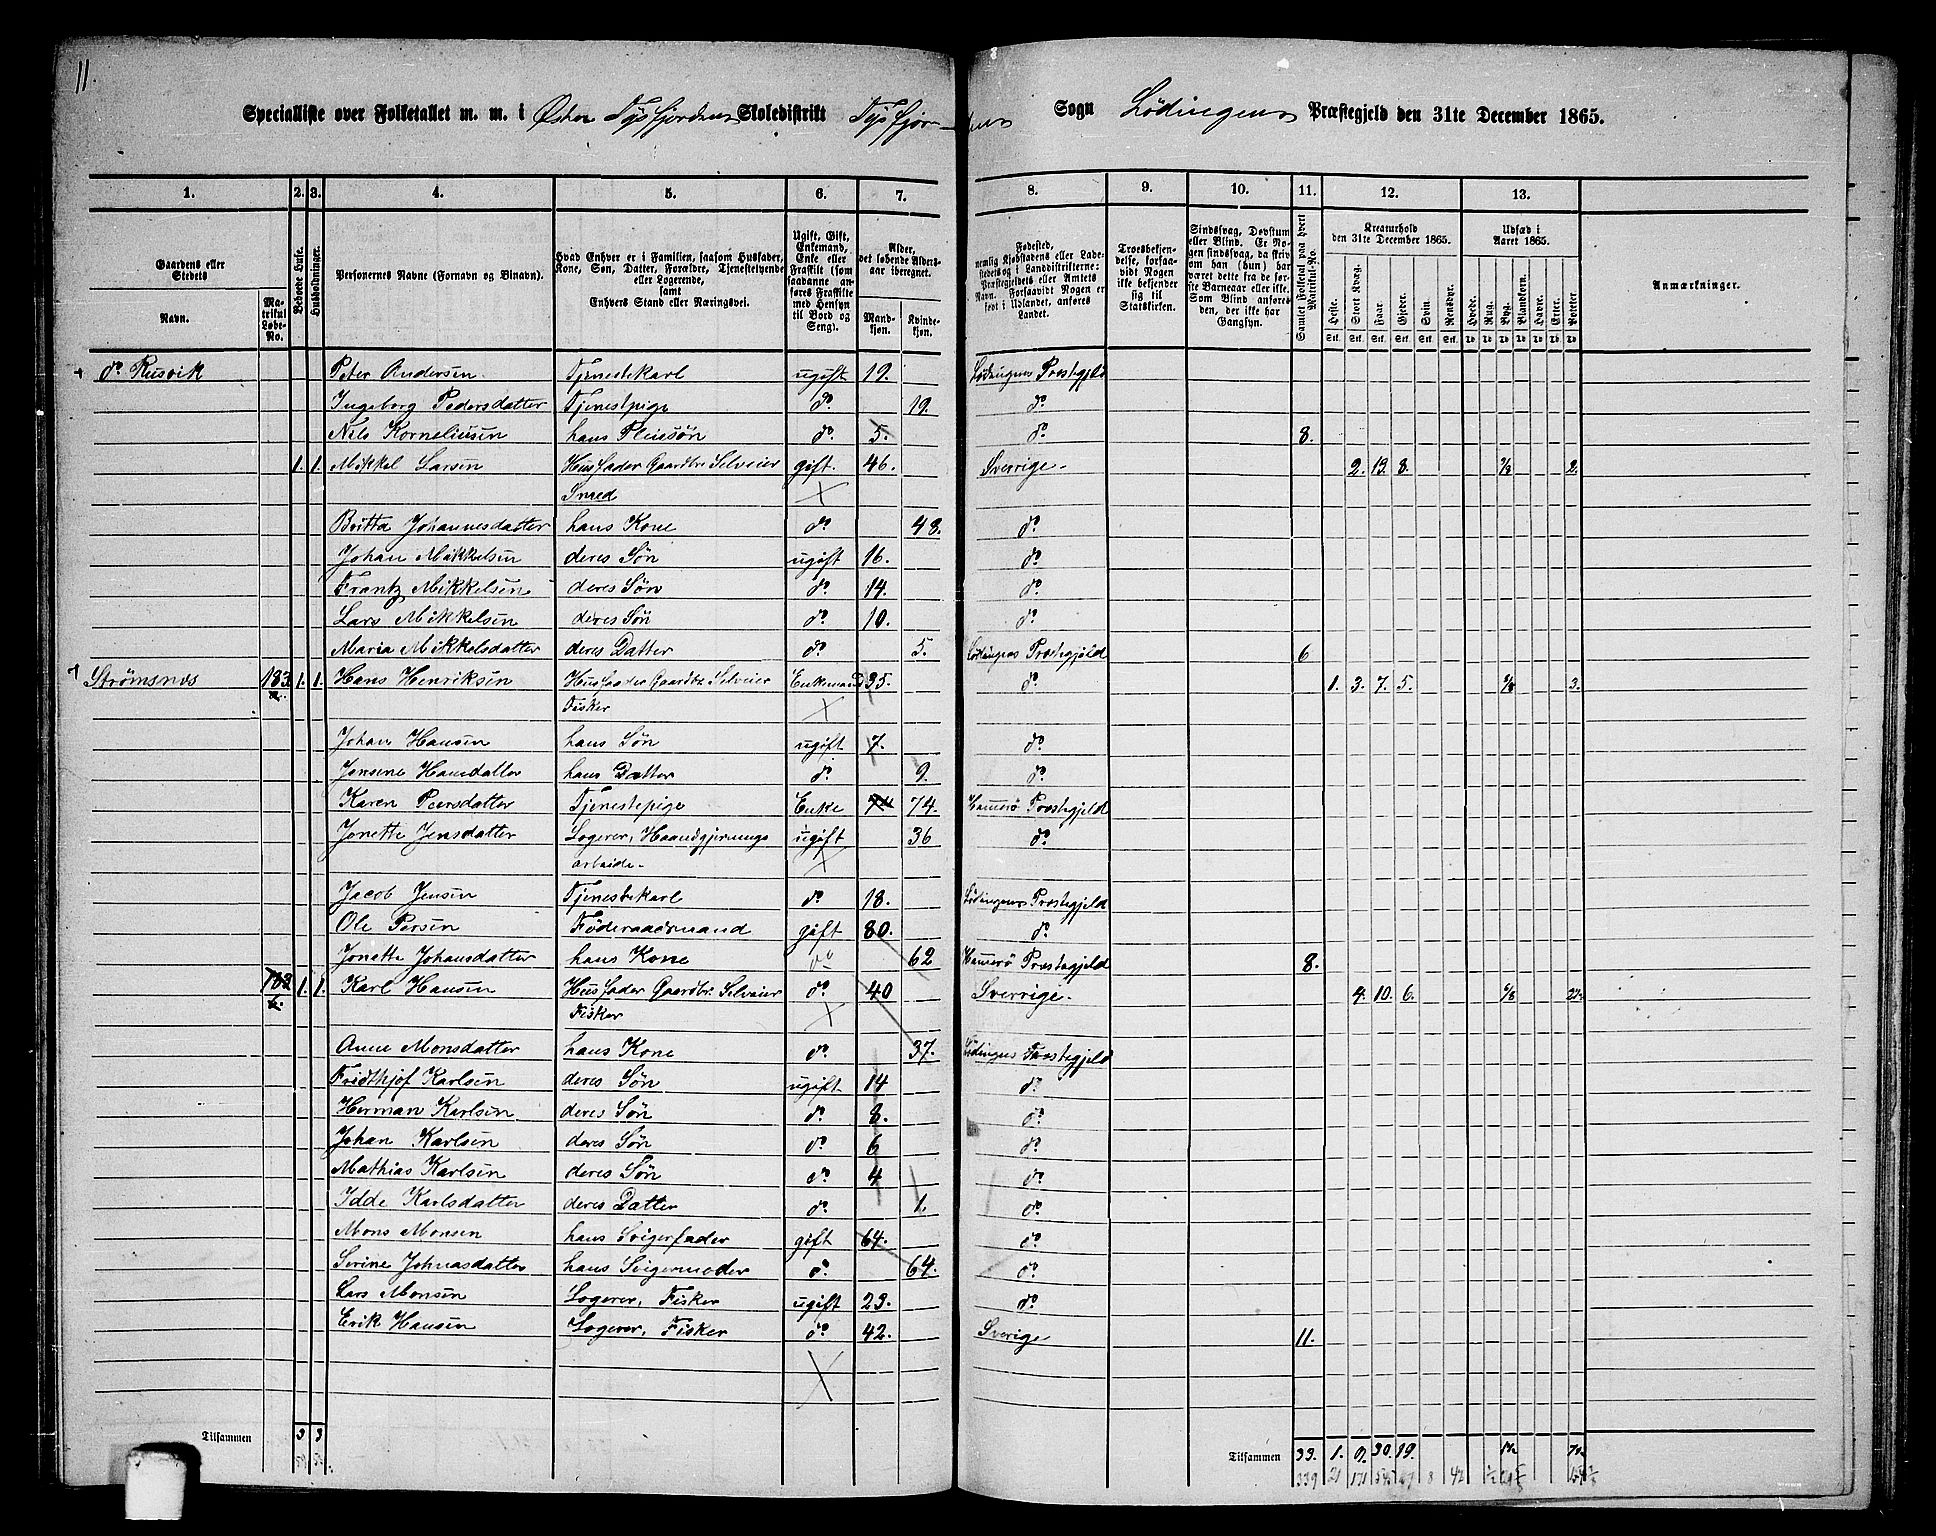 11.
Specialliste over Folketallet m. m. i Øster Tysfjordens Skoledistrikt Tysfjordens Sogn Lødingens Præstegjeld den 31te December 1865.
1. 2. 3. 4. 5. 6. 7. 8. 9. 10. 11. 12. 13.
Gaardens eller Stedets
Navn.
Matrikul Løbe-No.
Beboede Huse.
Husholdninger.
Personernes Navne (Fornavn og Binavn).
Hvad Enhver er i Familien, saasom Husfader, Kone, Søn, Datter, Forældre, Tjenestetyende eller Logerende, samt Enhvers Stand eller Næringsvei.
Ugift, Gift, Enkemand, Enke eller Fraskilt (som saadanne anføres Fraskilte med Hensyn til Bord og Seng).
Alder, det løbende Aldersaar iberegnet.
Mandkjøn. Kvindekjøn.
Fødested, nemlig Kjøbstadens eller Ladestedets og i Landdistrikterne: Præstegjeldets eller Amtets Navn. Forsaavidt Nogen er født i Udlandet, anføres Landet.
Troesbekjendelse, forsaavidt Nogen ikke bekjender sig til Statskirken.
Sindssvag, Døvstum eller Blind. Er Nogen sindssvag, da skrives om han (hun) har været dette fra de første Barneaar eller ikke. Som Blind anføres den, der ikke har Gangsyn.
Samlet Folketal paa hvert Matrikul-No.
Kreaturhold den 31te December 1865.
Heste. Stort Kvæg. Faar. Gjeder. Svin. Rensdyr.
Udsæd i Aaret 1865.
Hvede. Rug. Byg. Blandkorn. Havre. Erter. Poteter
Anmærkninger.
do Rusvik Peter Andersen Tjenestekarl ugift 19. Lødingens Præstegjeld
Ingeborg Pedersdatter Tjenestpige do 19. do
Nils Korneliusen hans Pleiesøn do 5. do 8.
1. 1. Mikkel Larsen Husfader Gaardbr. Selveier gift. 46. Sverrige. 2. 13. 8. 2.
Smed
Britta Johannesdatter hans Kone do 48. do
Johan Mikkelsen deres Søn ugift 16. do
Frantz Mikkelsen deres Søn do 14. do
Lars Mikkelsen deres Søn do 10. do
Maria Mikkelsdatter deres Datter do 5. Lødingens Præstegjeld 6
Strømsnes 183 a. 1. 1. Hans Henriksen Husfader Gaardbr Selveier Enkemand 35. do 1. 3. 7. 5. 3.
Fisker
Johan Hansen hans Søn ugift 7. do
Jensine Hansdatter hans Datter do 9. do
Karen Peersdatter Tjenestepige Enke 74 74. Hamerø Præstegjeld
Jonette Jensdatter Logerer, Haandgjernings ugift 36 do
arbeide.
Jacob Jensen Tjenestekarl do 18. Lødingens Præstegjeld
Ole Persen Føderaadsmand gift 80. do
Jonette Johansdatter hans Kone do 62 Hamerø Præstegjeld 8.
183 b. 1. 1. Karl Hansen Husfader Gaardbr. Selveier do 40 Sverrige. 4. 10. 6.
Fisker
Anne Monsdatter hans Kone do 37. Lødingens Præstegjeld
Fridthjof Karlsen deres Søn ugift 14 do
Herman Karlsen deres Søn do 8. do
Johan Karlsen deres Søn do 6 do
Mathias Karlsen deres Søn do 4 do
Idde Karlsdatter deres Datter do 1. do
Mons Monsen hans Svigerfader gift 64. do
Serine Johnasdatter hans Svigermoder do 64. do
Lars Monsen Logerer, Fisker ugift 23. do
Erik Hansen Logerer, Fisker do 42. Sverige 11.
Tilsammen 3 3 Tilsammen 33. 1. 9. 30. 19.
339 21